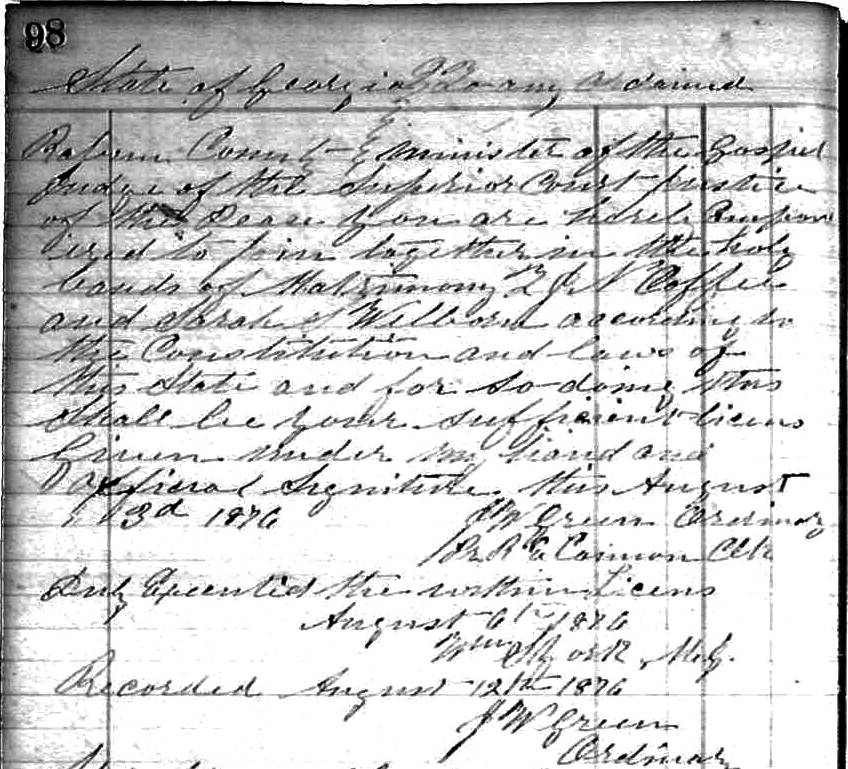 98
State of Georgia To any ordained
Rabun County minister of the Gospel
Judge of the Superior Court Justice
of the Peace you are hereb Empow
ered to join together in the holy
bands of Matrimony J N Coffee
and Sarah Wilborn according to
the Constitution and laws of
this State and for so doing this
Shall be your sufficient licens
Given under my hand and
official Signiture this August
3d 1876 J W Green Ordinary
R E Cannon Clk
Duly Executed the within Licens
August 6th 1876
Wm York M.G.
Recorded August 12th 1876
J W Green
Ordinary